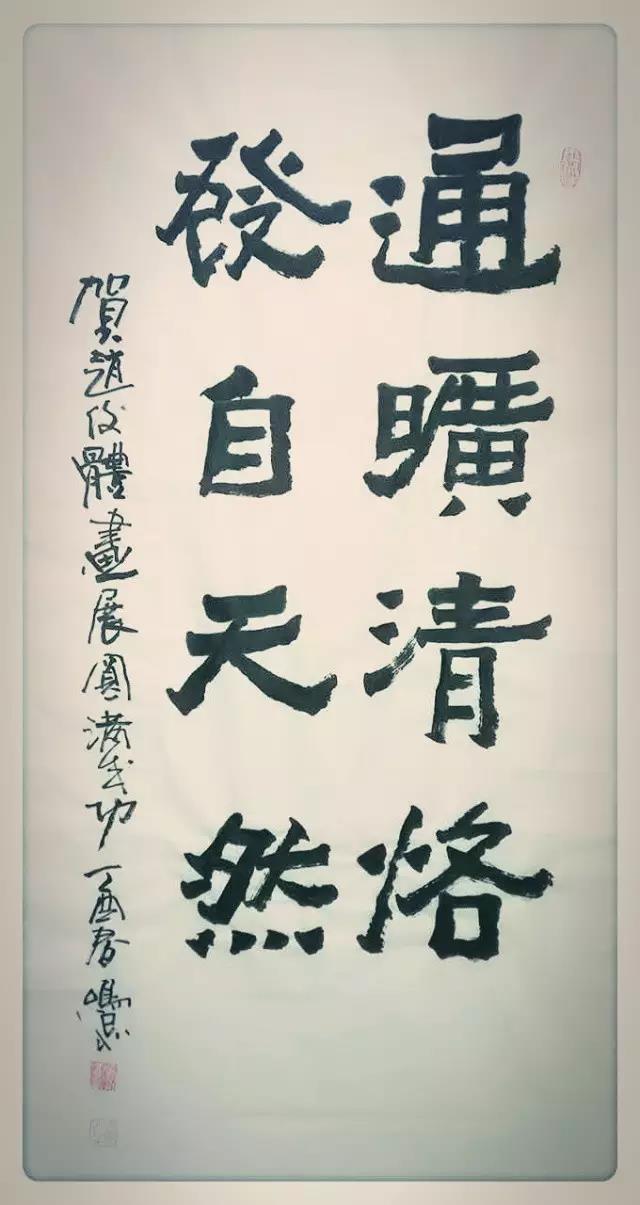 通曠清烙
發自天然
賀趙俊體畫展圓滿成功 丁酉春